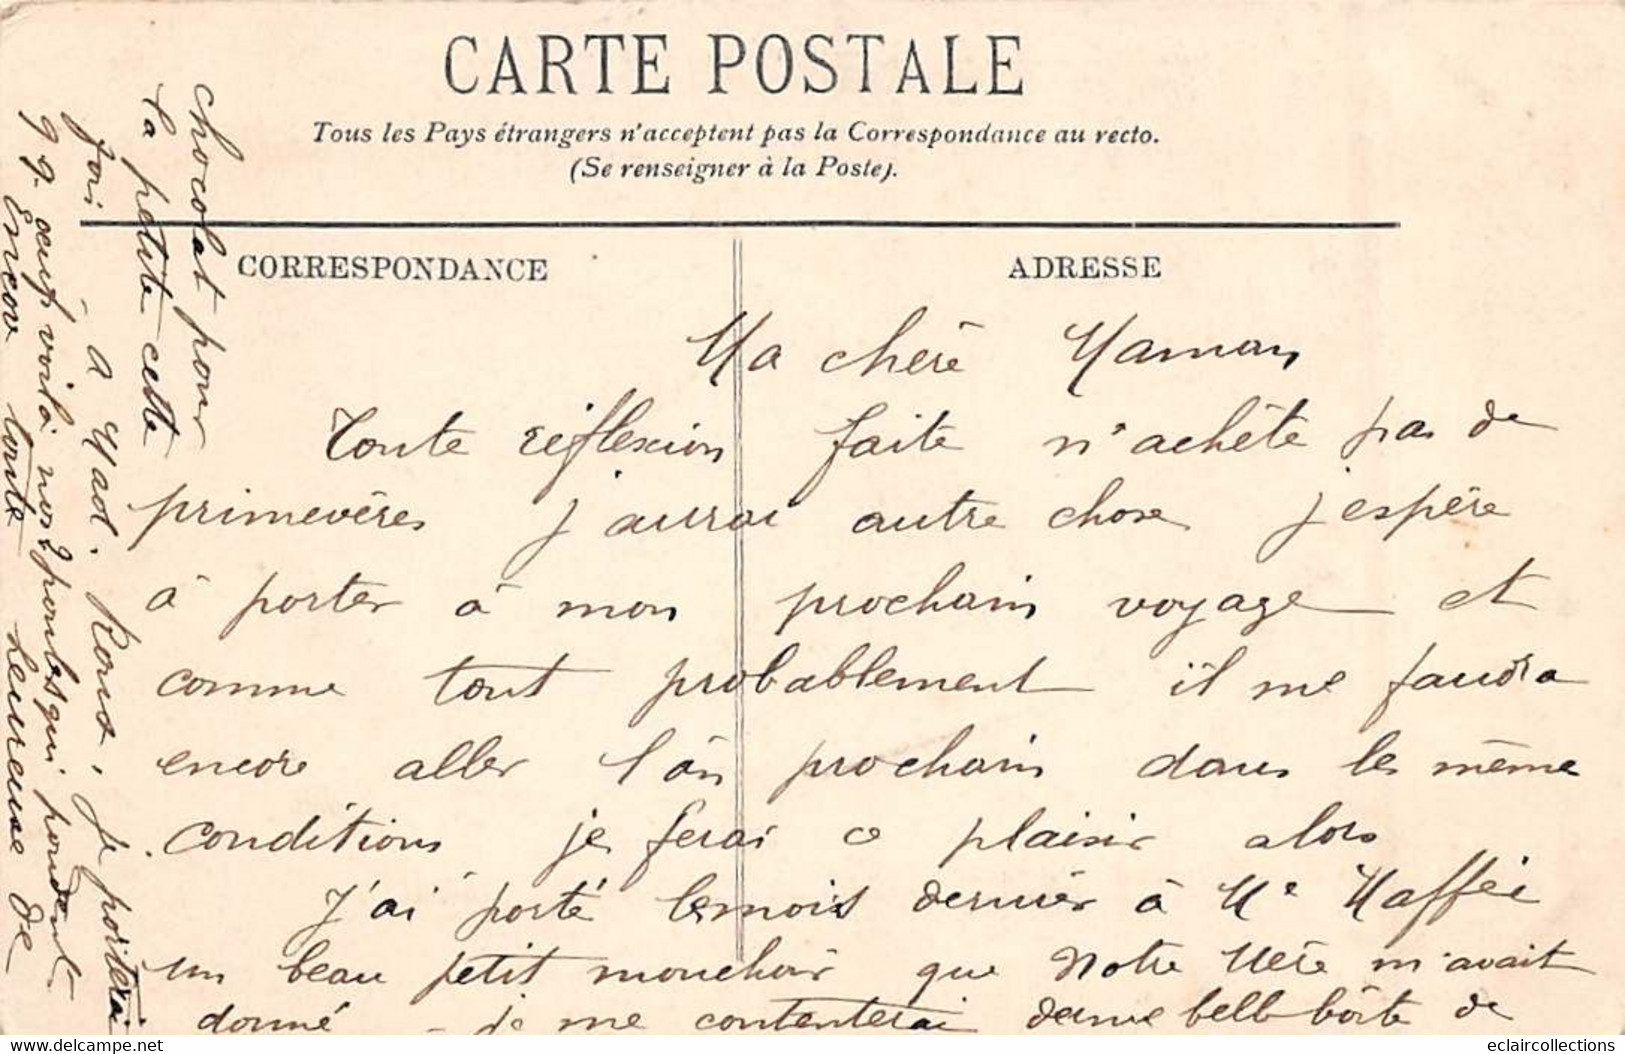 CARTE POSTALE
Tous les Pays étrangers n'acceptent pas la Correspondance au recto.
(Se renseigner à la Poste).
CORRESPONDANCE
ADRESSE
Ma chère Maman
Toute réflexion faite n'achète pas de
primevères j'aurai autre chose j'espère
à porter à mon prochain voyage et
comme tout probablement il me faudra
encore aller l'an prochain dans les même
conditions je ferai ce plaisir alors
J'ai porté le mois dernier à Me Maffei
un beau petit mouchoir que Notre Mère m'avait
donné - je me contenterai d'une belle boîte de
chocolat pour
la petite cette
fois - à Mad. Roux, je porterai
99 oeufs voilà nos 2 poules qui pondent
Encore toute heureuse de
eclaircollections